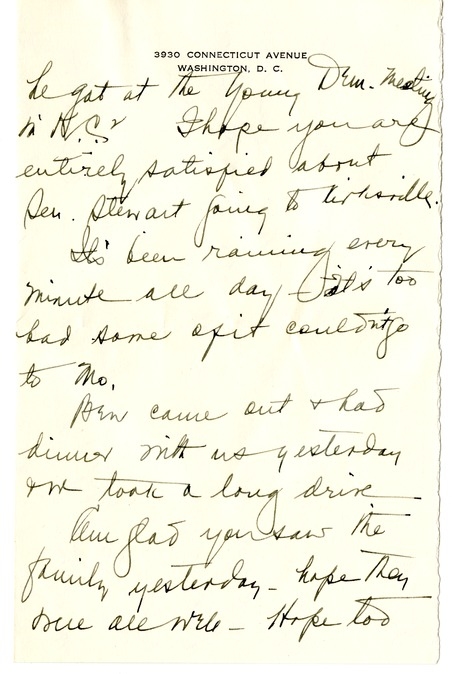 3930 CONNECTICUT AVENUE
WASHINGTON, D. C.
he got at the Young Dem. Meeting
in K.C? I hope you are
entirely satisfied about
Sen. Stewart going to Kirksville.
It's been raining every
minute all day – it's too
bad some of it couldn't go
to Mo.
Ben came out & had
dinner with us yesterday
& we took a long drive
Am glad you saw the
family yesterday – hope they
were all well – Hope too